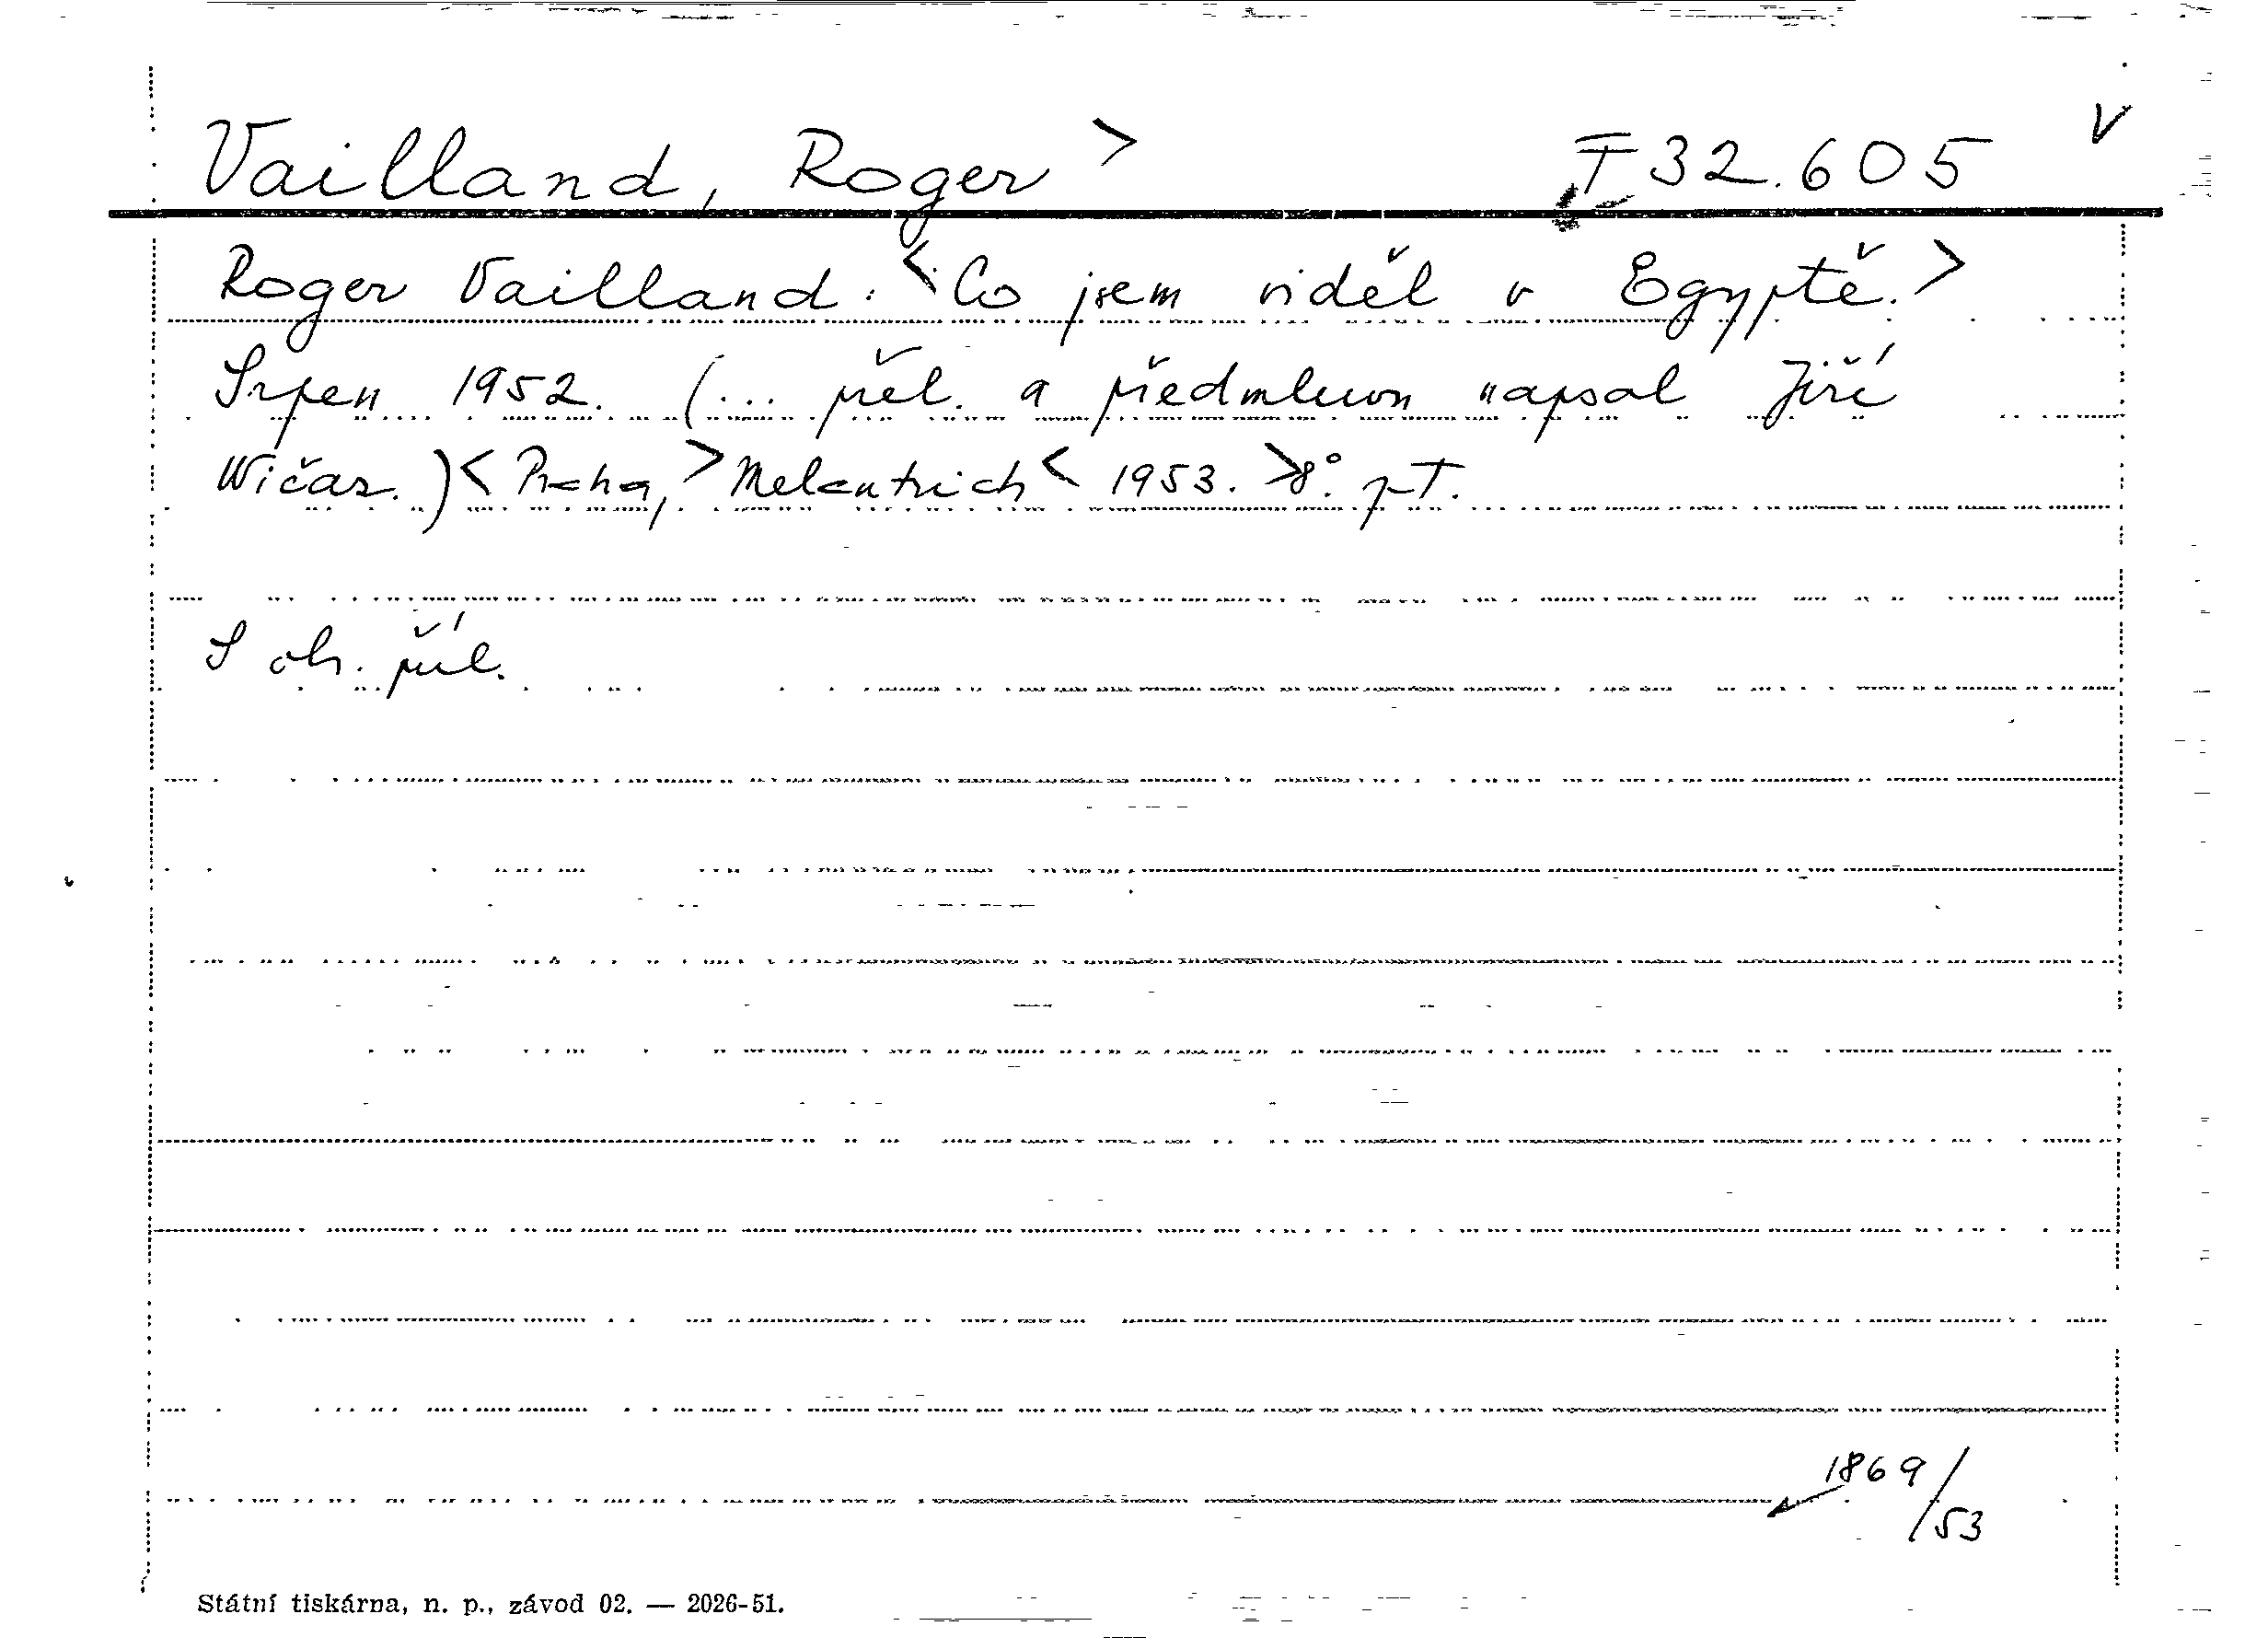 Vailland, Roger > I 32.605 V
Roger Vailland: <Co jsem viděl v Egyptě.>
Srpen 1952. (... přel. a předmluvu napsal Jiří
Wičaz.) < Praha, > Melantrich < 1953. > 8°. p T.
S obr. příl.
1869/53
Státní tiskárna, n. p., závod 02. — 2026-51.